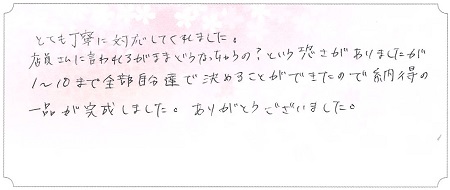 とても丁寧に対応してくれました。
店員さんに言われるがままどうなっちゃうの?という恐さがありましたが
1~10まで全部自分達で決めることができたので納得の
一品が完成しました。ありがとうございました。